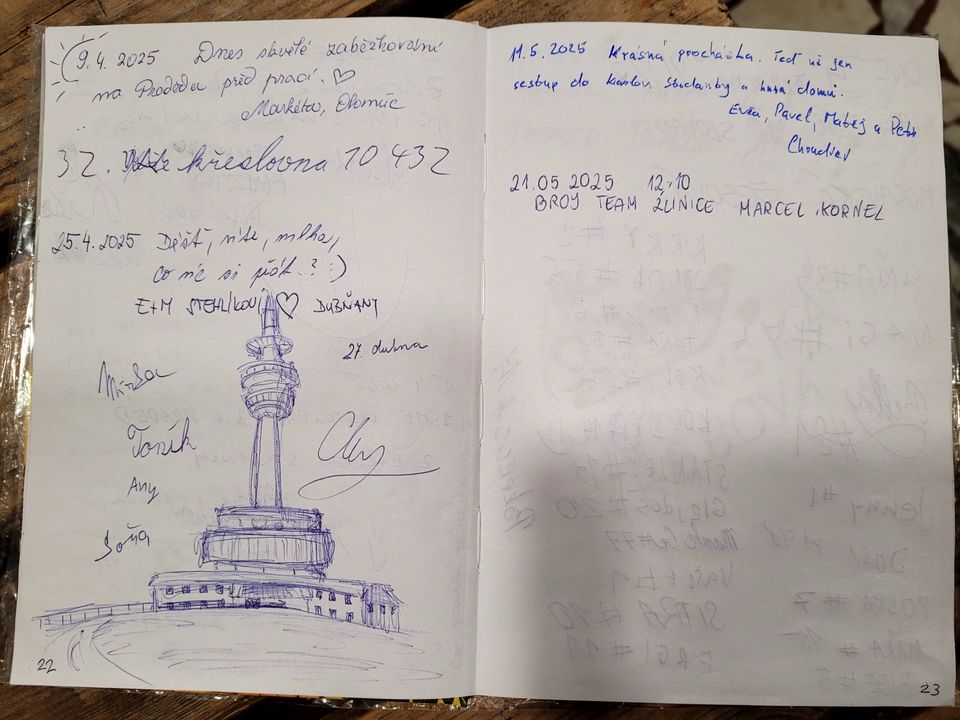 9.4.2025 Dnes skvělé zaběžkování
na Pradědu před prací. ♡
Markéta, Olomouc
32. křeslovna 10 432
25.4.2025 Déšť, vítr, mlha,
co víc si přát..? :)
E+M STEHLÍKOVI ♡ DUBŇANY
27. dubna
Toník
Any
Soňa
22
11.5.2025 Krásná procházka. Teď už jen
sestup do Karlovy Studánky a hurá domů.
Eva, Pavel, Matěj a Petr
21.05 2025 12:10
BROY TEAM ŽLINICE MARCEL, KORNEL
23